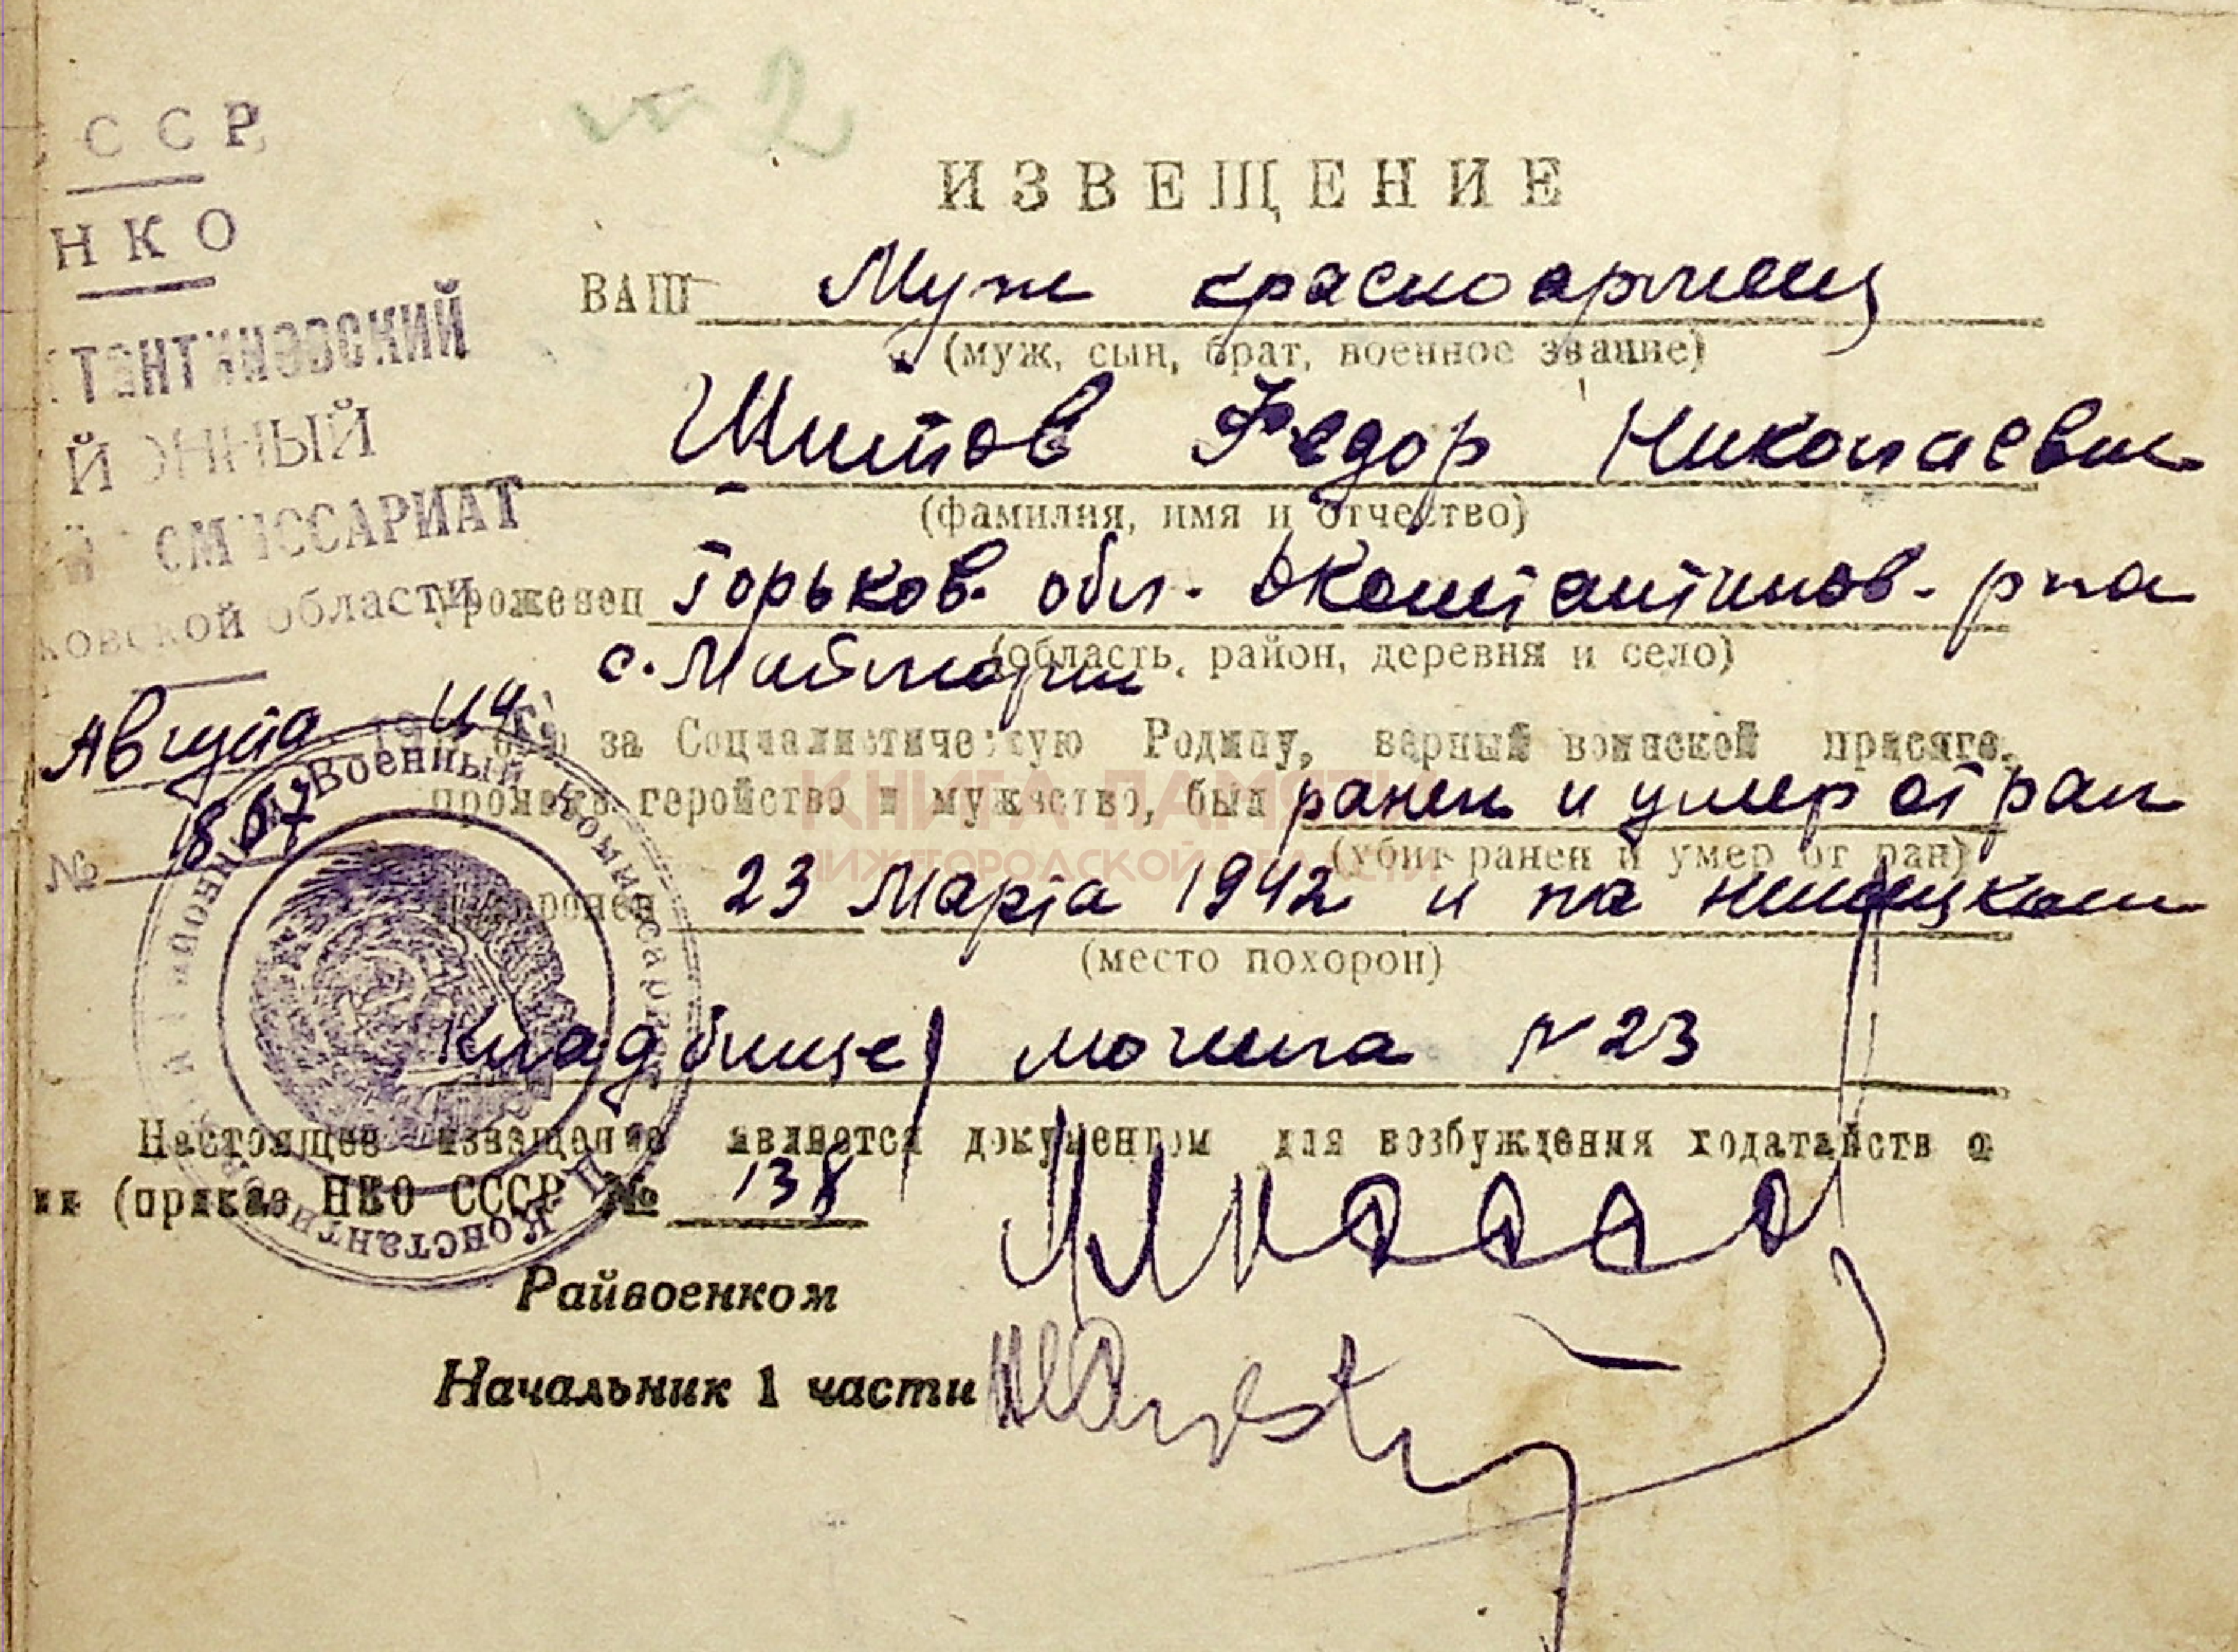 № 2
ССР
НКО
ТАНТИНОВСКИЙ
Й ОННЫЙ
ОМИССАРИАТ
ковской области
Августа 1944 г.
№ 1857
ИЗВЕЩЕНИЕ
ВАШ Муж красноармеец
(муж, сын, брат, военное звание)
Шитов Федор Николаевич
(фамилия, имя и отчество)
уроженец Горьков. обл. Д Константинов. р-на
(область, район, деревня и село)
с. Майдан
бою за Социалистическую Родину, верный воинской присяге,
проявив геройство и мужество, был ранен и умер от ран
(убит ранен и умер от ран)
похоронен 23 Марта 1942 и на
(место похорон)
кладбище, могила № 23
Настоящее извещение является документом для возбуждения ходатайств о
ии (приказ НКО СССР № 138
Райвоенком
Начальник 1 части
Военный Комиссариат
КНИГА ПАМЯТИ
НИЖЕГОРОДСКОЙ ОБЛАСТИ